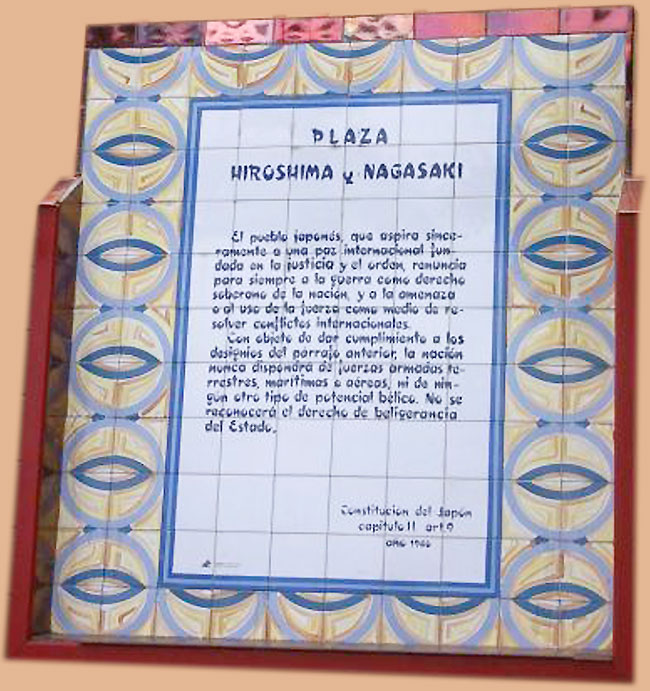 PLAZA
HIROSHIMA y NAGASAKI
El pueblo japonés, que aspira since-
ramente a una paz internacional fun-
dada en la justicia y el orden, renuncia
para siempre a la guerra como derecho
soberano de la nación, y a la amenaza
o al uso de la fuerza como medio de re-
solver conflictos internacionales.
Con objeto de dar cumplimiento a los
designios del párrafo anterior, la nación
nunca dispondrá de fuerzas armadas te-
rrestres, marítimas o aéreas, ni de nin-
gún otro tipo de potencial bélico. No se
reconocerá el derecho de beligerancia
del Estado.
Constitución del Japón
capítulo II art. 9
año 1946